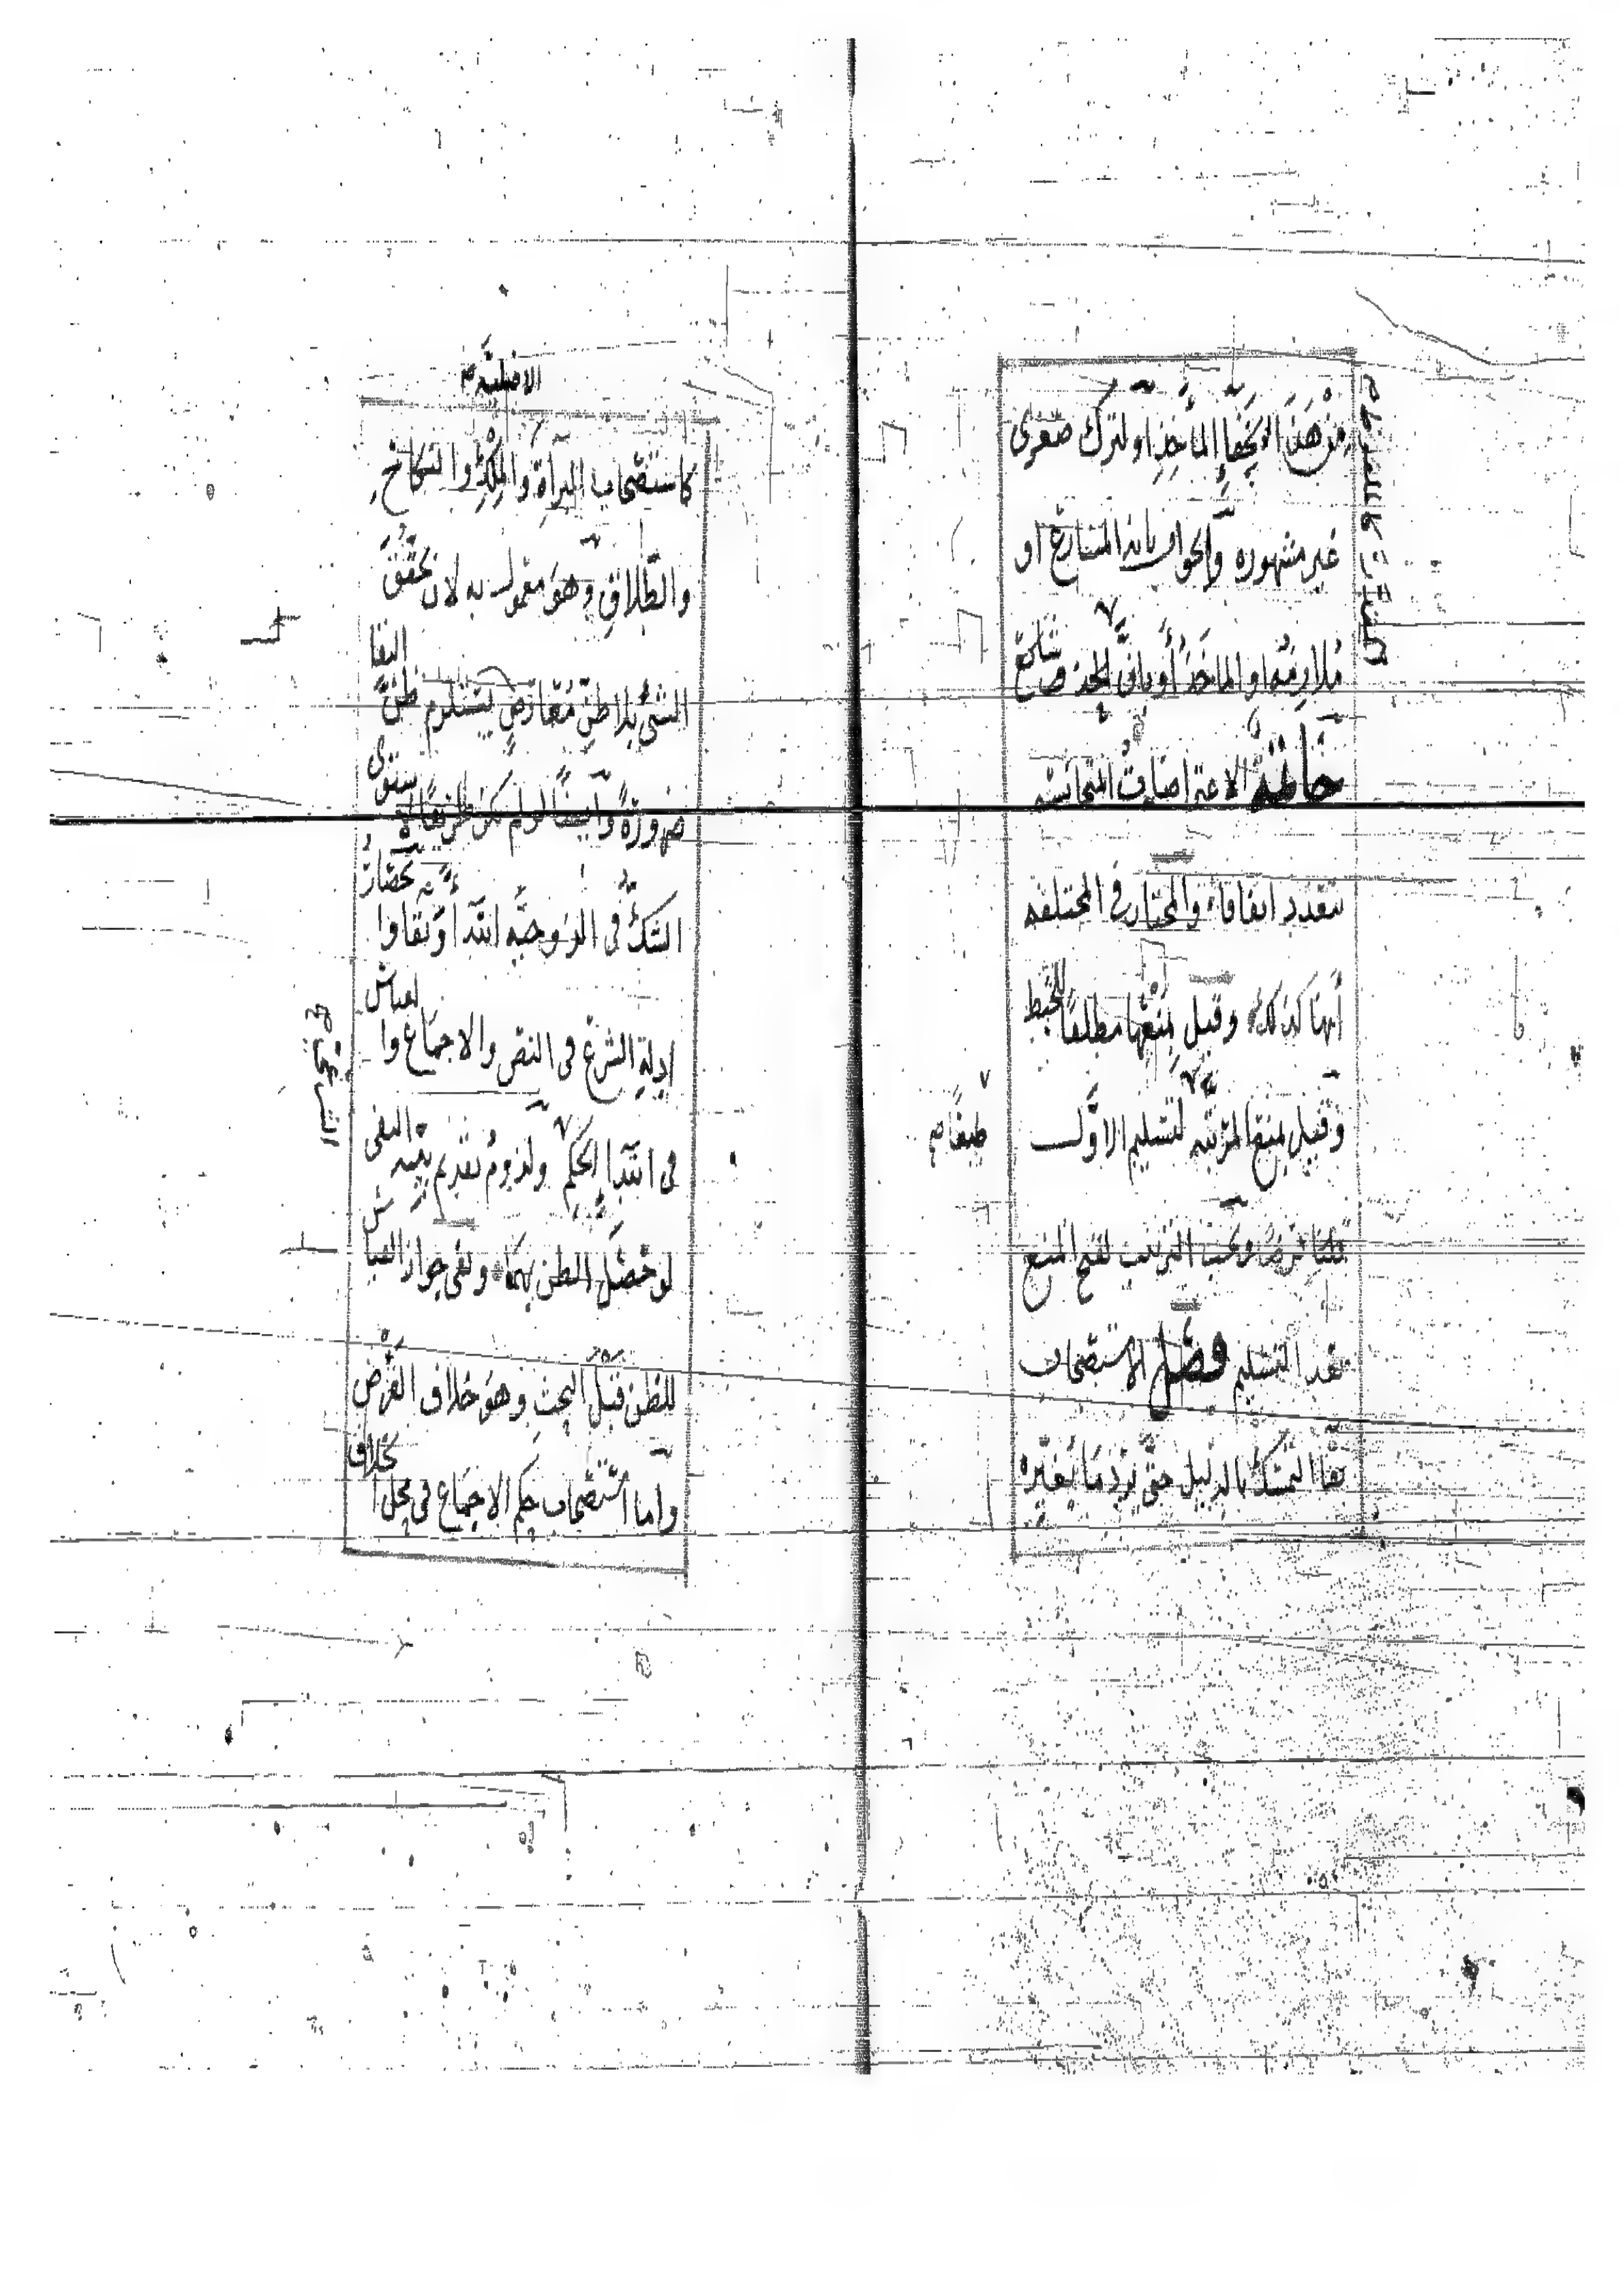 من هنا لخفأ المأخذ او لترك صغرى
غير مشهوره والجواب بانه المتنازع او
ملازمه او المأخذ أو بأن الحذف شائع
خاتمة الاعتراضات المتجانسه
تتعدد اتفاقا والمختار في المختلفه
أنها كذلك وقيل بمنعها مطلقا للخبط
وقيل بمنع المرتبه لتسليم الأول
طبعا صح
قلنا فرضا ويجب الترتيب لقبح المنع
بعد التسليم فصل الاستصحاب
بقا التمسك بالدليل حتى يرد ما يغيره
الاصلية صح
كاستصحاب البرأة والملك والنكاح
والطلاق وهو معمول به لان تحقق
الشئ بلا ظن معارض يستلزم ظن البقا
ضرورة وأيضا لو لم يكن طريقا لاستوى
الشك في الزوجيه ابتدأ وبقا وا تحصار
ادلة الشرع في النص والاجماع وا لقياس
في ابتدا الحكم ولزوم تقديم بينه النفى
لو حصل الظن بهما ونفى جواز القياس
للظن قبل البحث وهو خلاف الفرض
واما استصحاب حكم الاجماع في محل ا لخلاف